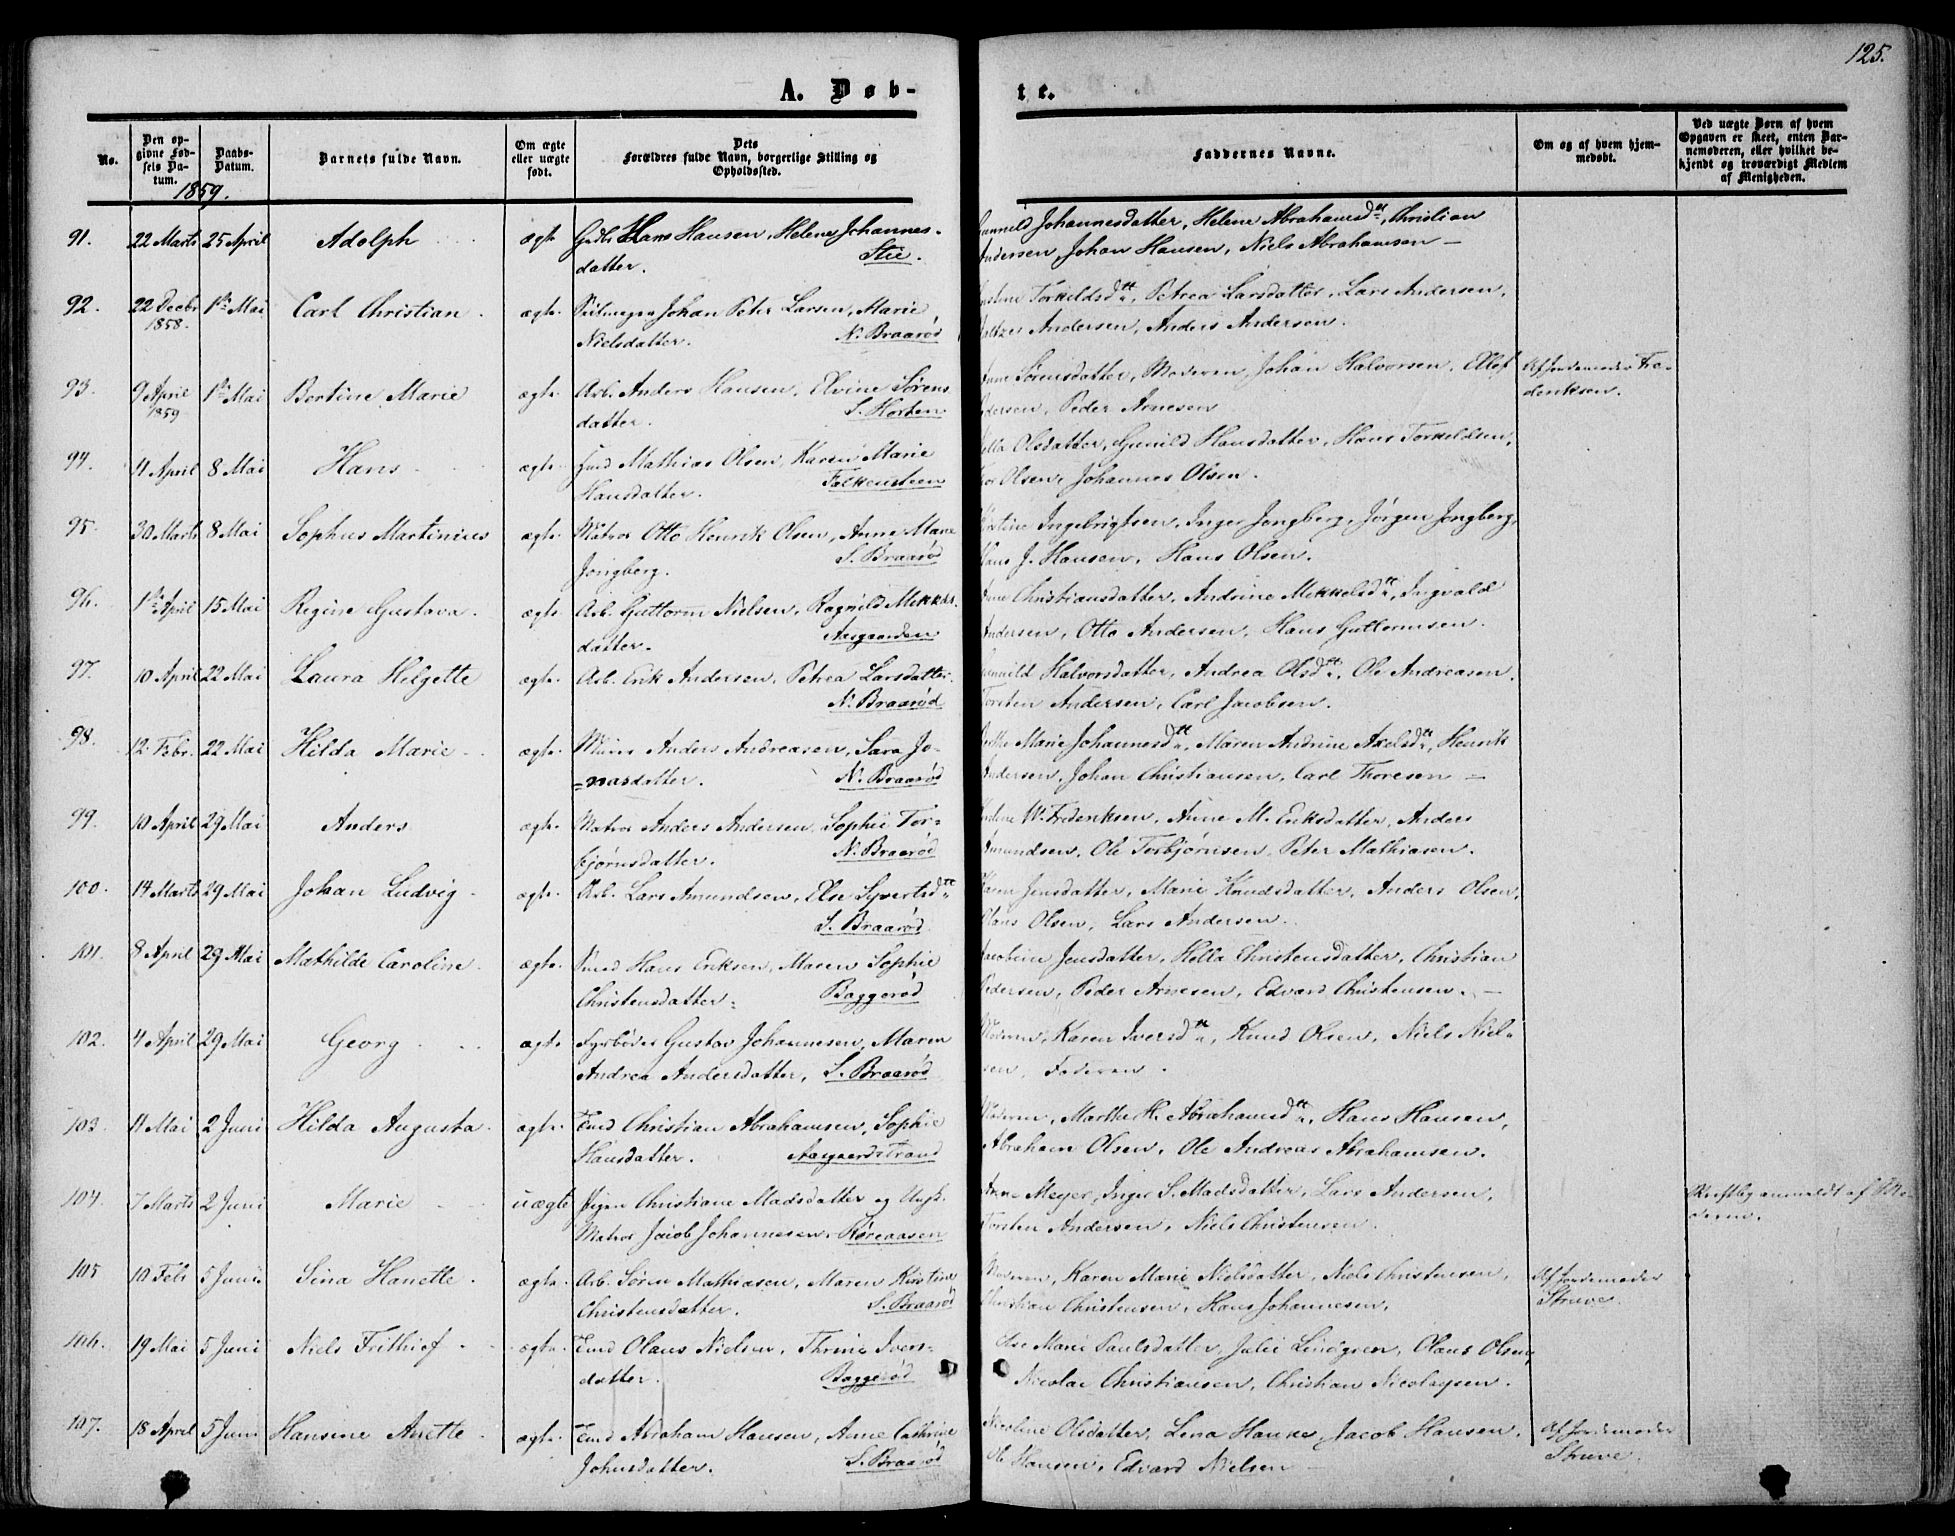 125.
A. Døb-
te.
No.
Den op-
givne Fød-
sels Da-
tum.
Daabs-
Datum.
Barnets fulde Navn.
Om ægte
eller uægte
født.
Dets
Forældres fulde Navn, borgerlige Stilling og
Opholdssted.
Faddernes Navne.
Om og af hvem hjem-
medøbt.
Ved uægte Børn af hvem
Opgaven er skeet, enten Bar-
nemoderen, eller hvilket be-
kjendt og troværdigt Medlem
af Menigheden.
1859.
91. 22 Marts 25 April Adolph ægte Hans Hansen, Helene Johannes-
datter. Stie.
Johannesdatter, Helene Abrahamsdtr, Christian
Andersen, Johan Hansen, Niels Abrahamsen —
92. 22 Decbr 1ste Mai Carl Christian ægte. Johan Peter Larsen, Marie
1858.
Nielsdatter. N. Braarød
Torkeldsdtr, Petrea Larsdatter, Lars Andersen,
Andersen, Anders Andersen.
93. 9 April 1ste Mai Bertine Marie ægte. Arb. Anders Hansen, Elvine Sørens
1859
datter. S. Horten
Anne Sørensdatter, Moderen, Johan Halvorsen, Ellef
Pedersen, Peder Arnesen
Af Jordemoder Fre-
deriksen.
94. 4 April 8 Mai Hans ægte. Mathias Olsen, Karen Marie
Hansdatter. Falkensteen
Olsdatter, Gunild Hansdatter, Hans Torkeldsen,
Olsen, Johannes Olsen.
95. 30 Marts 8 Mai Sophus Martinius ægte. Matros Otto Henrik Olsen, Anne Marie
Jongberg. S. Braarød
Ingebrigtsen, Inger Jongberg, Jørgen Jongberg,
Hans J. Hansen, Hans Olsen.
96. 1ste April 15 Mai Regine Gustava. ægte. Arb. Guttorm Nielsen, Ragnild Mikkels-
datter. Aasgaarden
Anne Christiansdatter, Andrine Mikkelsdtr, Ingvald
Andersen, Otto Andersen, Hans Guttormsen.
97. 10 April 22 Mai Laura Helgette ægte. Arb. Erik Andersen, Petrea Larsdatter.
N. Braarød
Gunnild Halvorsdatter, Andrea Olsdtr, Ole Andreasen.
Torsten Andersen, Carl Jacobsen.
98. 12 Febr. 22 Mai Hilda Marie ægte. Anders Andreasen, Sara Jo-
=nasdatter. N. Braarød
Marie Johannesdtr, Maren Andrine Axelsdtr, Henrik
Andersen, Johan Christiansen, Carl Thoresen —
99. 10 April 29 Mai Anders ægte. Matros Anders Andersen, Sophie Tor-
bjørnsdatter. N. Braarød
W. Frederiksen, Anne M. Eriksdatter, Anders
Amundsen, Ole Torbjørnsen, Peter Mathiasen.
100. 14 Marts 29 Mai Johan Ludvig. ægte. Arb. Lars Amundsen, Else Syvertsdtr
S. Braarød
Jensdatter, Marie Knudsdatter, Anders Olsen,
Olaus Olsen, Lars Andersen.
101. 8 April 29 Mai Mathilde Caroline. ægte. Smed Hans Eriksen, Maren Sophie
Christensdatter. Baggerød
Jacobine Jensdatter, Hella Christensdatter, Christian
Pedersen, Peder Arnesen, Edvard Christensen. —
102. 4 April 29 Mai Georg ægte Fyrbøder Gustav Johannesen, Maren
Andrea Andersdatter, S. Braarød
Moderen, Karen Iversdtr, Knud Olsen, Niels Niel-
sen, Faderen.
103. 11 Mai 2 Juni Hilda Augusta. ægte. Christian Abrahamsen, Sophie
Hansdatter. Aasgaardstrand
Moderen, Marthe H. Abrahamsdtr, Hans Hansen,
Abraham Olsen, Ole Andreas Abrahamsen.
104. 7 Marts 2 Juni Marie uægte Pigen Christiane Madsdatter og Ungk.
Matros Jacob Johannesen, Røreaasen
Anne Meyer, Inger S. Madsdatter, Lars Andersen,
Torsten Andersen, Niels Christensen.
Skriftlig anmeldt af Mo-
deren.
105 10 Feb 5 Juni Sina Hanette. ægte. Arb. Søren Mathiasen, Maren Kirstine
Christensdatter. S. Braarød
Moderen, Karen Marie Nielsdatter, Niels Christensen,
Christian Christensen, Hans Johannesen.
Af Jordemoder
Struve.
106. 19 Mai 5 Juni Niels Frithief ægte. Olaus Nielsen, Thrine Ivers-
datter. Baggerød
Marie Paulsdatter, Julie Lindgren, Olaus Olsen,
Nicolai Christiansen, Christian Nicolaysen.
107. 18 April 5 Juni Hansine Anette. ægte. Abraham Hansen, Anne Cathrine
Johnsdatter. S. Braarød
Nicoline Olsdatter, Lena Hanke, Jacob Hansen,
Ole Hansen, Edvard Nielsen
Af Jordemoder
Struve.